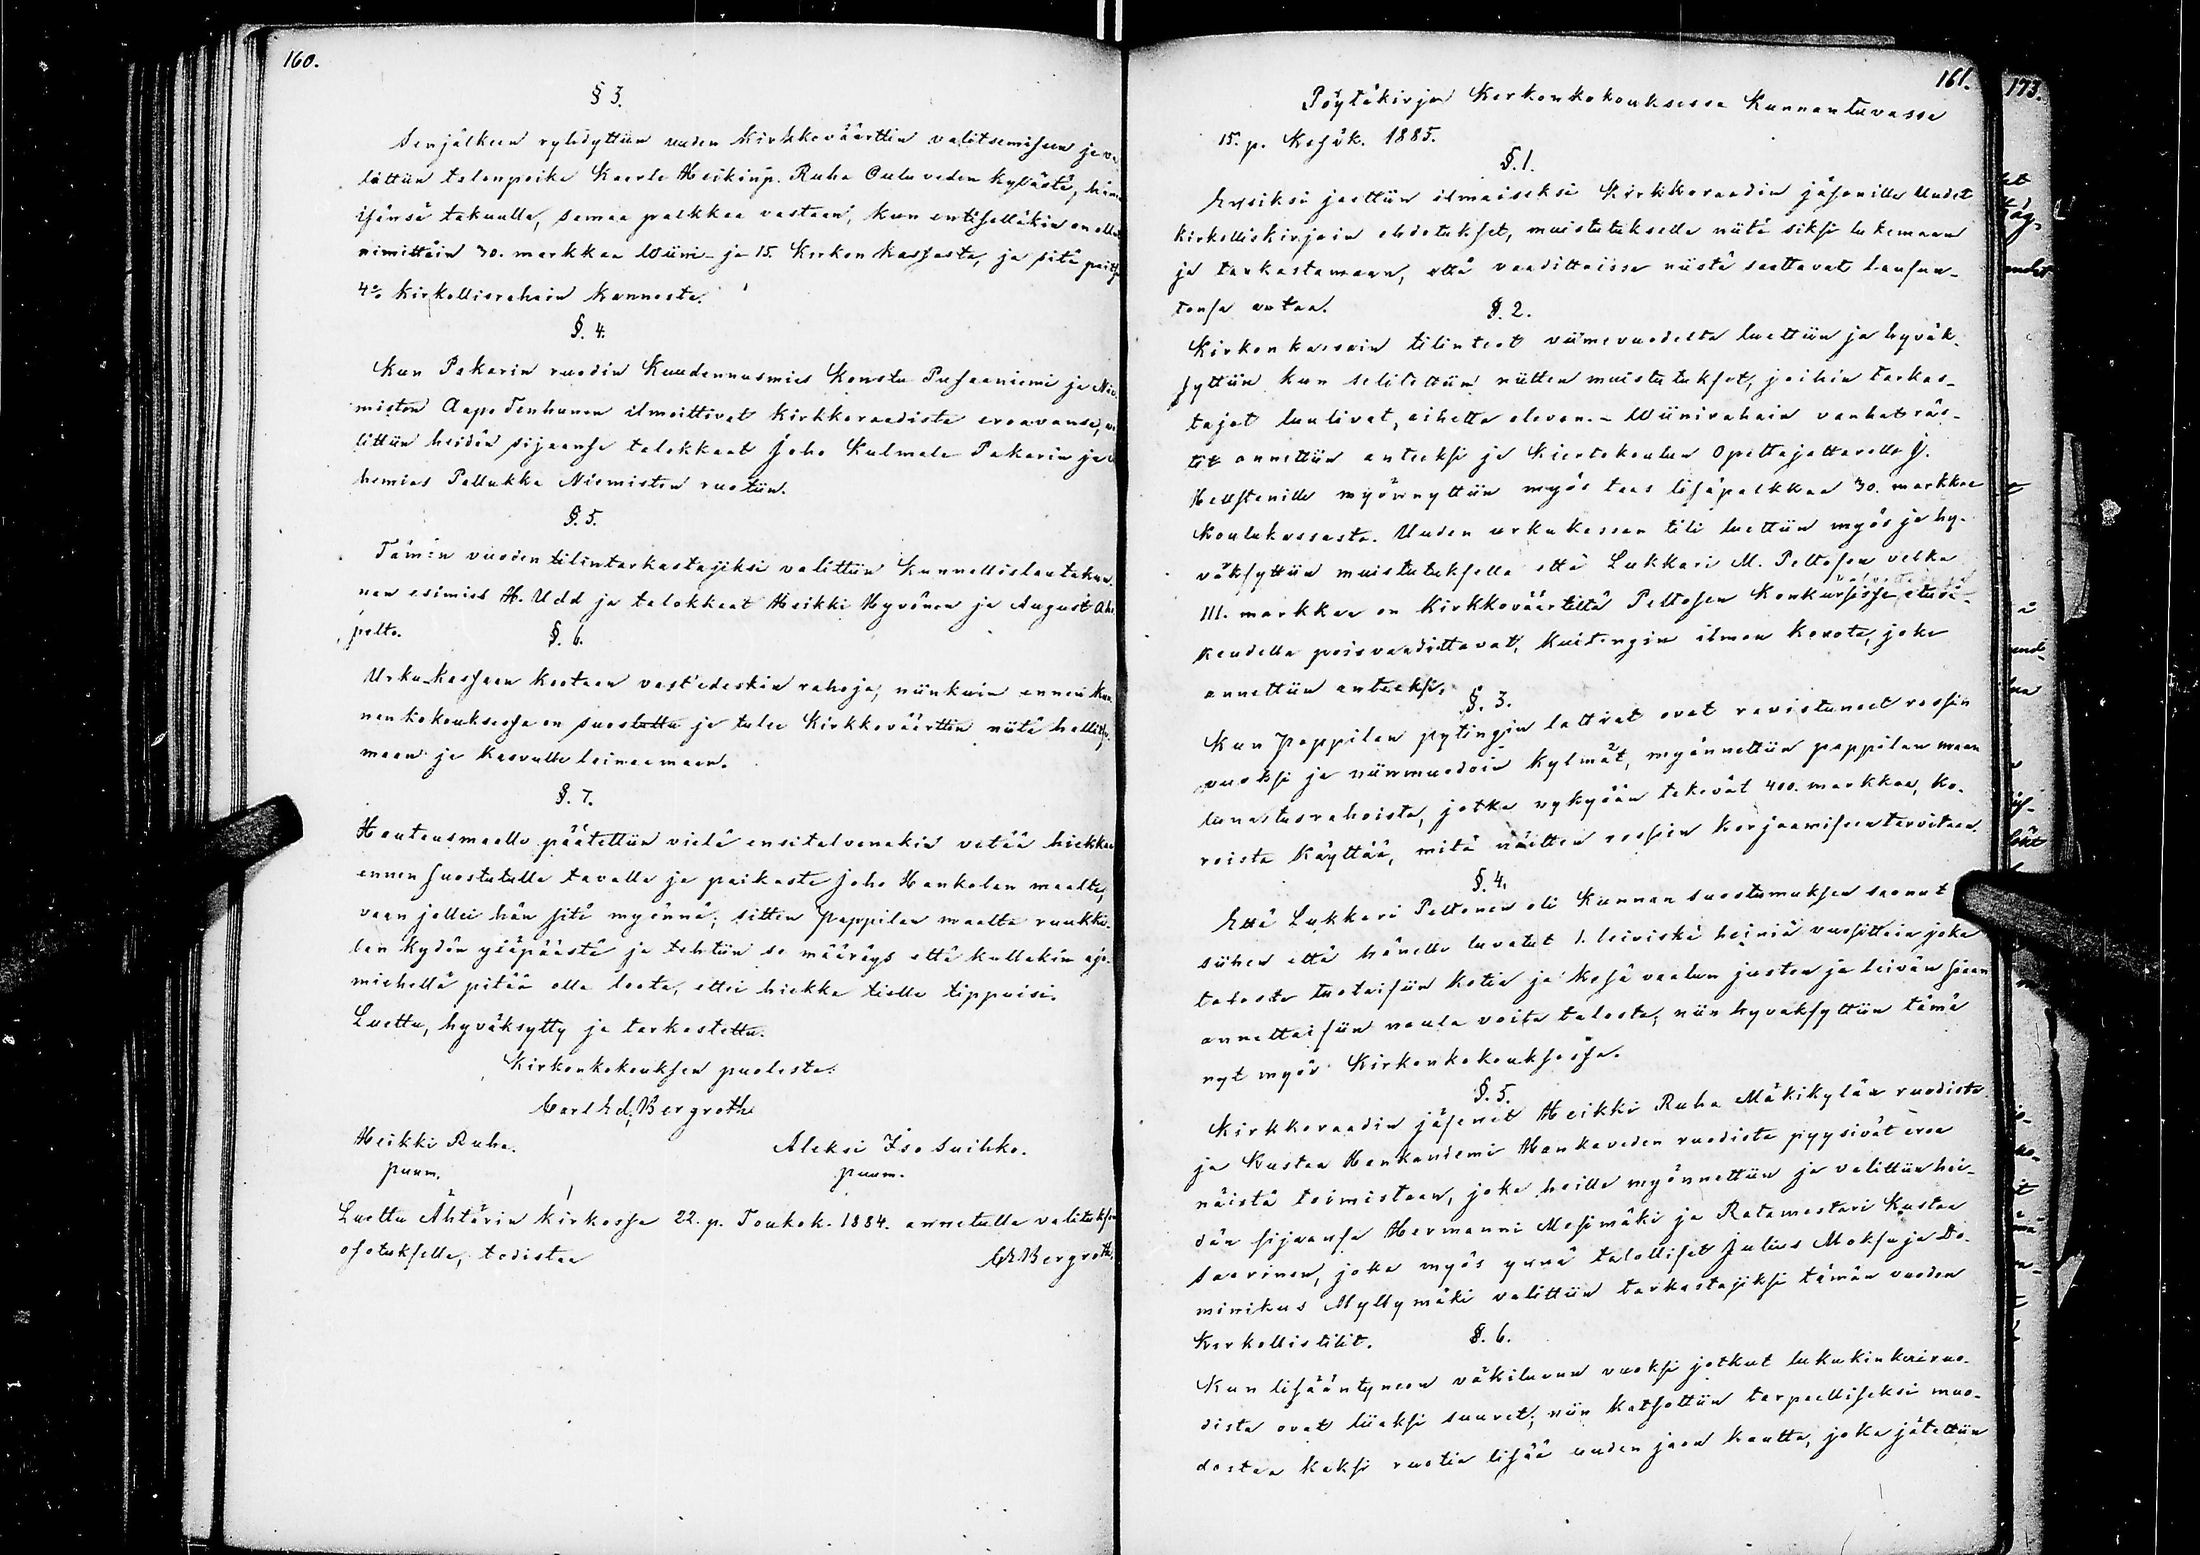 160.
§ 3.
Senjälkeen ryhdyttiin uuden Kirkkoväärttin valitsemiseen ja va
littiin talonpoika Kaarle Heikinp. Ruha Ouluveden kylästä, hänen
isänsä takuulla, samaa palkkaa vastaan, kun entisellekin on ollut
nimittäin 30. markkaa Wiini- ja 15. Kirkon kassasta, ja sitä paitse
4% Kirkollisrahain kannosta.
§. 4.
Kun Pakarin ruodin Kuudennusmies Konsta Pusaaniemi ja Nie
misten Aapo Tenhunen ilmoittivat Kirkkoraadista eroavansa, va
littiin heidän sijaansa talokkaat Juho Kulmala Pakarin ja
hemias Pellukka Niemisten ruotiin.
§. 5.
Tämän vuoden tilintarkastajiksi valittiin Kunnallislautakun
nan esimies H. Udd ja talokkaat Heikki Hyvönen ja August Aho
pelto.
§. 6.
Urku-kassaan kootaan vast'edeskin rahoja, niinkuin ennen kun
nan kokouksessa on suostuttu ja tulee Kirkkoväärttin niitä hallitse
maan ja kasvulle lainaamaan.
§. 7.
Hautausmaalle päätettiin vielä ensitalvenakin vetää hiekkaa
ennen suostutulla tavalla ja paikasta Juho Hankolan maalta,
vaan jollei hän sitä myönnä; sitten Pappilan maalta ruukki-
lan kydön yläpäästä ja tehtiin se määräys että kullakin ajo-
miehellä pitää olla loota, ettei hiekka tielle tippuisi.
Luettu, hyväksytty ja tarkastettu.
Kirkonkokouksen puolesta:
Carl Ed. Bergroth
Heikki Ruha. Aleksi Iso Suihko.
puum. puum.
Luettu Ähtärin Kirkossa 22. p. Toukok. 1884. annetulla valituksen
osotuksella, todistaa
CE. Bergroth.
161.
Pöytäkirja Kirkonkokouksessa Kunnantuvassa
15. p. Kesäk. 1885.
§. 1.
Ensiksi jaettiin ilmaiseksi Kirkkoraadin jäsenille Uudet
kirkolliskirjain ehdotukset, muistutuksella niitä siksi lukemaan
ja tarkastamaan, että vaadittaissa niistä saattavat lausun-
tonsa antaa.
§. 2.
Kirkonkassain tilinteot viimevuodelta luettiin ja hyväk-
syttiin kun selitettiin niitten muistutukset, joihin tarkas-
tajat luulivat, aihetta olevan. - Wiinirahain vanhat räs-
tit annettiin anteeksi ja Kiertokoulun Opettajattarelle J.
Hellstenille myönnyttiin myös taas lisäpalkkaa 30. markkaa
Koulukassasta. Uuden urkukassan tili luettiin myös ja hy-
väksyttiin muistutuksella että Lukkari M. Peltosen velka
111. markkaa on Kirkkoväärtiltä Peltosen Konkurssissa etuoi-
keudella poisvaadittavat, kuitengin ilman korota, joka
annettiin anteeksi.
§. 3.
Kun Pappilan pytingin lattiat ovat ravistuneet rossin
vuoksi ja niinmuodoin kylmät, myönnettiin pappilan maan
lunastusrahoista, jotka nykyään tekevät 400. markkaa, ko-
roista käyttää, mitä näitten rossien korjaamiseen tarvitaan.
§. 4.
Että Lukkari Peltonen oli Kunnan suostumuksen saanut
siihen että hänelle luvatut 1. leiviskä heiniä vuosittain joka
talosta tuotaisiin kotia ja kesä vaalun juston ja leivän siaan
annettaisiin naula voita talosta; niin hyväksyttiin tämä
nyt myös Kirkonkokouksessa.
§. 5.
Kirkkoraadin jäsenet Heikki Ruha Mäkikylän ruodista
ja Kustaa Hankaniemi Hankaveden ruodista pyysivät eroa
näistä toimistaan, joka heille myönnettiin ja valittiin hei-
dän sijaansa Hermanni Mesimäki ja Ratamestari Kustaa
Saarinen, jotka myös ynnä talolliset Julius Moksu ja Do-
minikus Myllymäki valittiin tarkastajiksi tämän vuoden
Kirkollistilit.
§. 6.
Kun lisääntyneen väkiluvun vuoksi jotkut lukukinkeriruo-
dista ovat liiaksi suuret; niin katsottiin tarpeelliseksi muo-
dostaa kaksi ruotia lisää uuden jaon kautta, joka jätettiin
173.